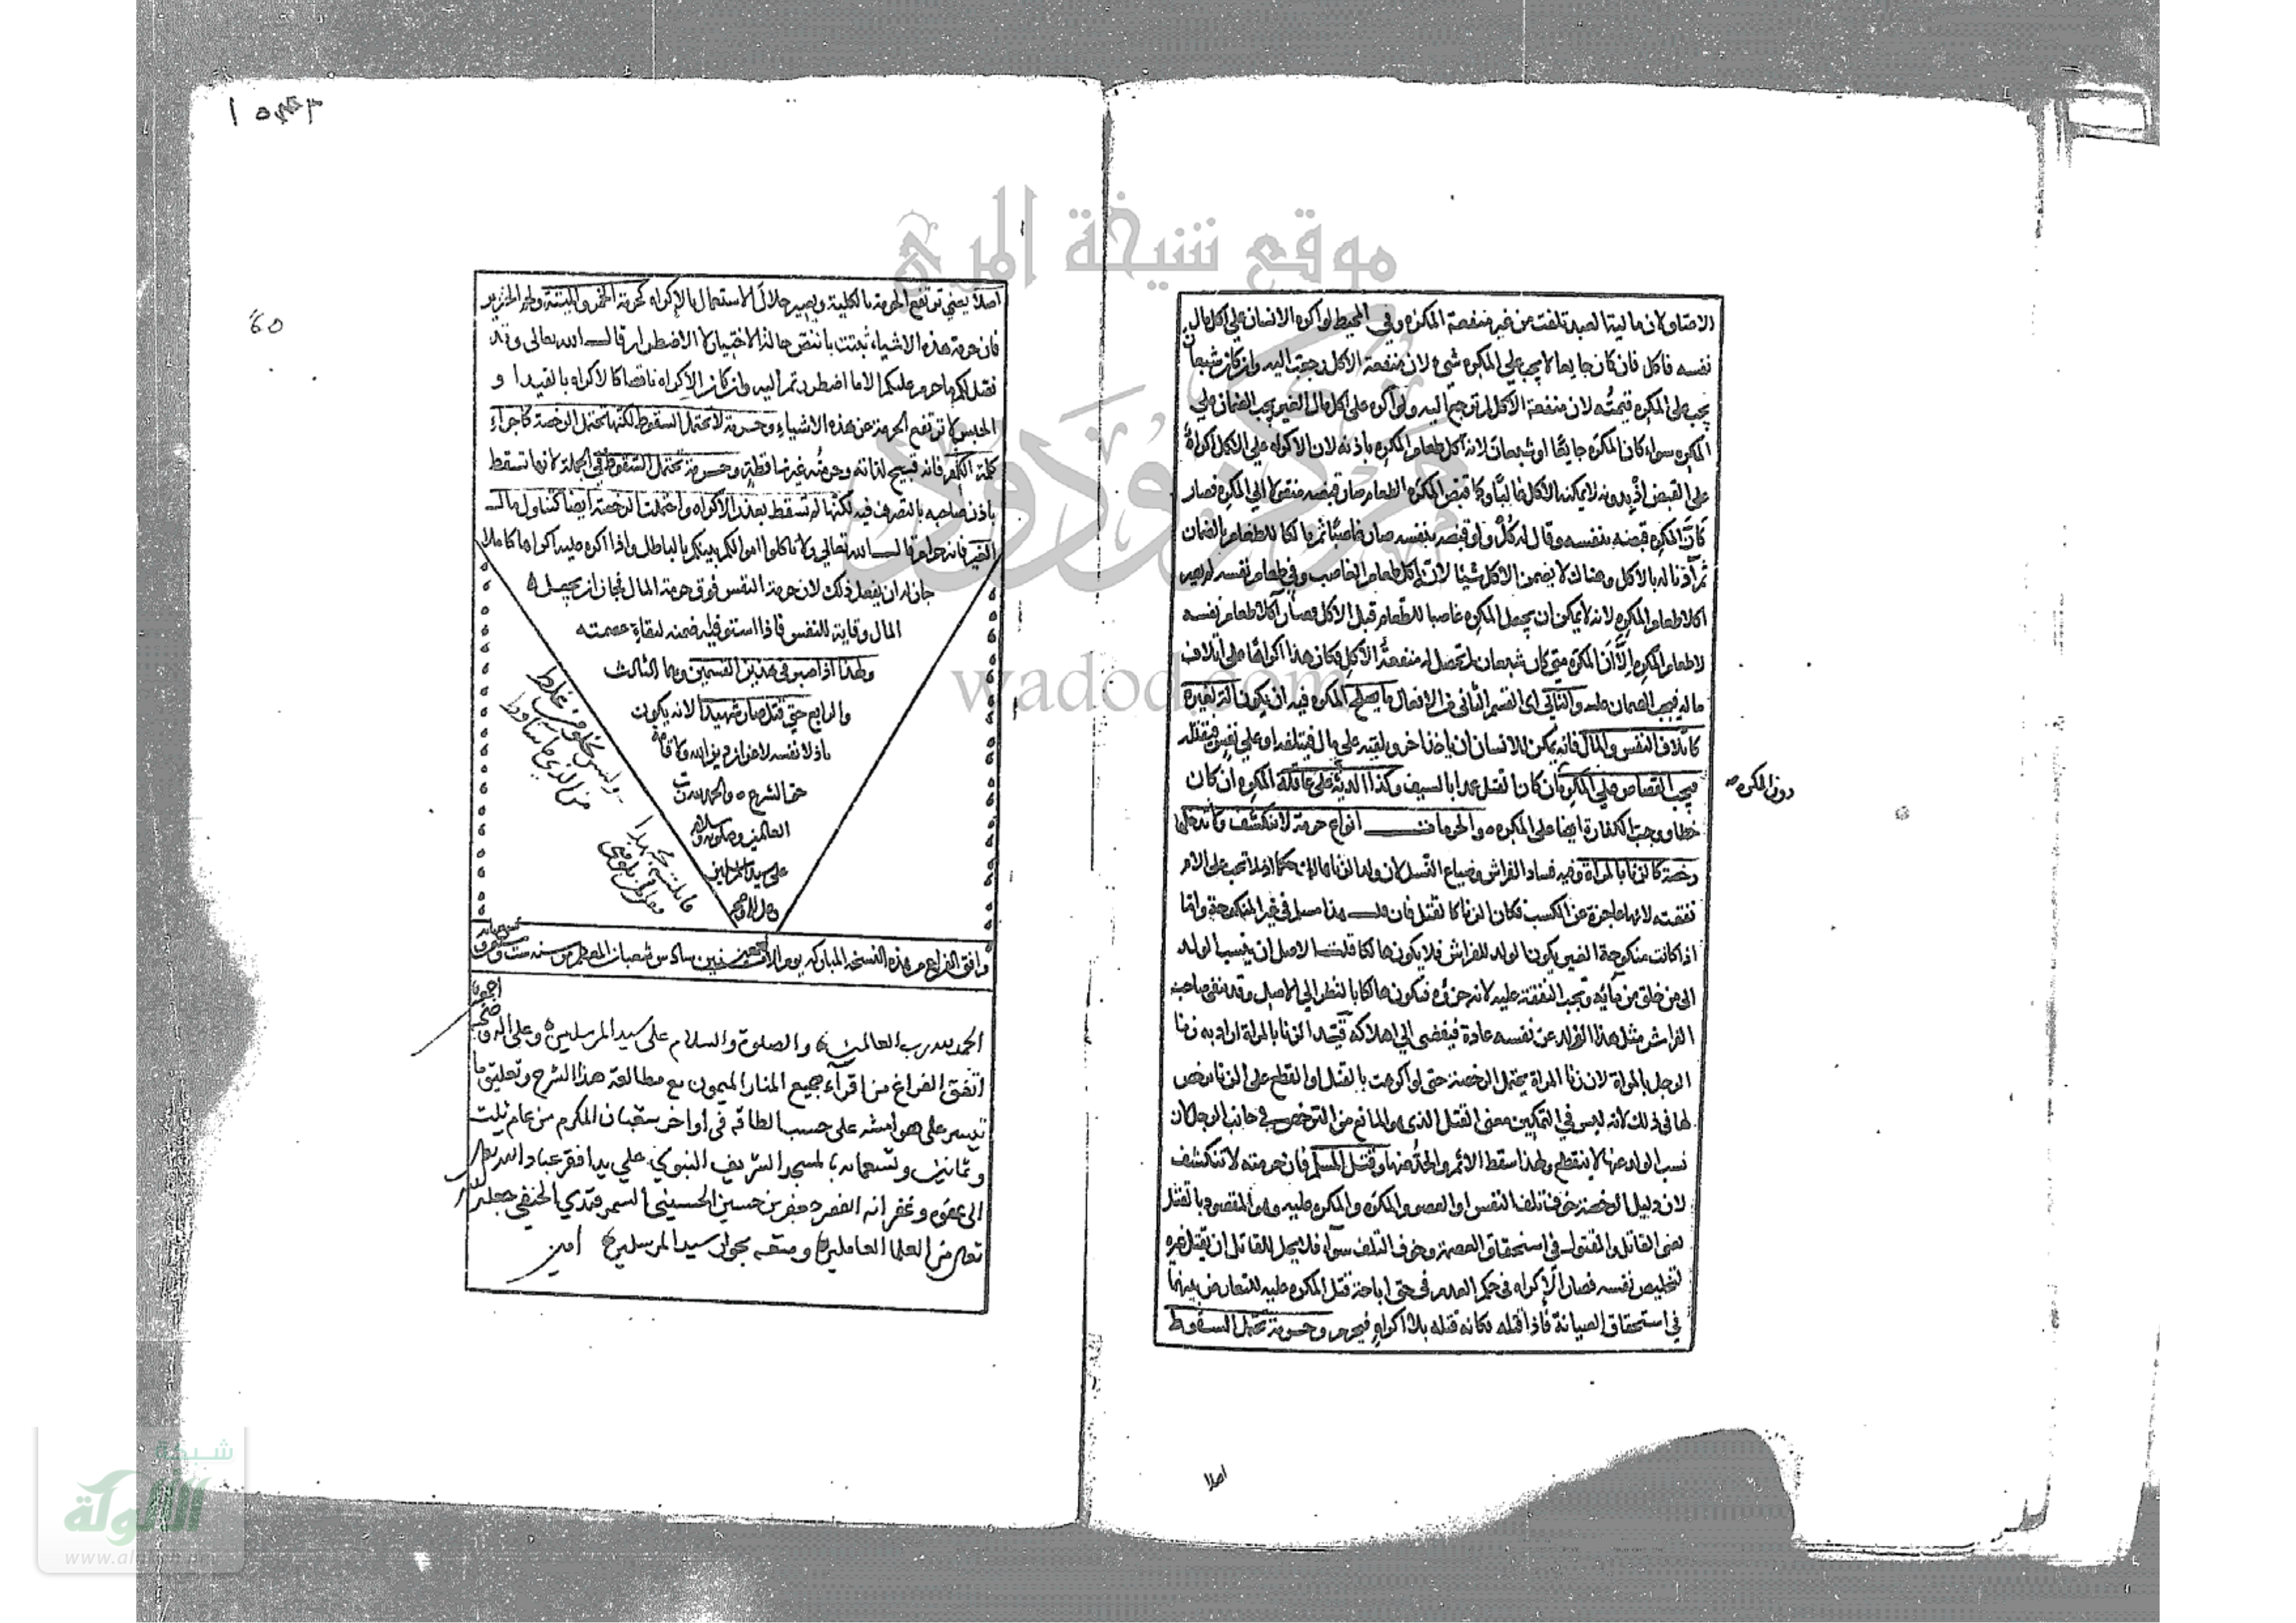 الاعتاق لان مالية العبد تلفت من غير منفعة المكره وفي المحيط لو اكره الانسان على اكل مال
نفسه فاكل فان كان جايعا لا يجب على المكره شيء لان منفعة الاكل رجعت اليه وان كان شبعان
يجب على المكره قيمته لان منفعة الاكل لم ترجع اليه ولو اكره على اكل مال الغير يجب الضمان على
المكره سواء كان المكره جايعا او شبعان لانه اكل طعام المكره باذنه لان الاكراه على الاكل اكراه
على القبض اذ بدونه لا يمكنه الاكل غالبا وكما قبض المكره الطعام صار قبضه منقولا الى المكره فصار
كان المكره قبضه بنفسه وقال له كل ولو قبضه بنفسه صار غاصبا ثم مالكا للطعام بالضمان
ثم آذنا له بالاكل وهناك لا يضمن الاكل شيئا لانه اكل طعام الغاصب وفي طعام نفسه لم يصر
اكلا طعام المكره لانه لا يمكن ان يجعل المكره غاصبا للطعام قبل الاكل فصار آكلا طعام نفسه
لا طعام المكره الا ان المكره متى كان شبعان لم تحصل له منفعة الاكل فكان هذا اكراها على اتلاف
ماله فيجب الضمان عليه والثاني اى القسم الثاني من الافعال ما يصلح المكره فيه ان يكون آلة لغيره
كاتلاف النفس والمال فانه يمكن للانسان ان ياخذ اخر ويلقيه على مال فيتلفه او على نفس فيقتله
فيجب القصاص على المكره ان كان القتل عمدا بالسيف وكذا الدية على عاقلة المكره ان كان
دون المكره صح
خطا ووجب الكفارة ايضا على المكره والحرمات انواع حرمة لا تنكشف ولا تدخلها
رخصة كالزنا بالمراة وفيه فساد الفراش وضياع النسل لان ولد الزنا هالك حكما اذ لا تجب على الام
نفقته لانها عاجزة عن الكسب فكان الزنا كالقتل فان قلت هذا مسلم في غير المنكوحة واما
اذا كانت منكوحة الغير يكون الولد للفراش فلا يكون هالكا قلت الاصل ان ينسب الولد
الى من خلق من مائه وتجب النفقة عليه لانه جزؤه فيكون هالكا بالنظر الى الاصل وقد ينفى صاحب
الفراش مثل هذا الولد عن نفسه عادة فيفضى الى اهلاكه قيد الزنا بالمراة اراد به زنا
الرجل بالمراة لان زنا المراة يحتمل الرخصة حتى لو اكرهت بالقتل او القطع على الزنا رخص
لها في ذلك لانه ليس في التمكين معنى القتل الذى هو المانع من الترخص في جانب الرجل لان
نسب الولد عنها لا ينقطع ولهذا سقط الاثم والحد عنها وقتل المسلم فان حرمته لا تنكشف
لان دليل الرخصة خوف تلف النفس او العضو والمكره والمكره عليه وهو المقصود بالقتل
يعنى القاتل والمقتول في استحقاق العصمة وخوف التلف سواء فلا يحل للقاتل ان يقتل غيره
لتخليص نفسه فصار الاكراه في حكم العدم في حق اباحة قتل المكره عليه للتعارض بينهما
في استحقاق الصيانة فاذا قتله فكانه قتله بلا اكراه فيحرم وحرمة تحتمل السقوط
اصلا
اصلا يعني ترتفع الحرمة بالكلية ويصير حلال الاستعمال بالاكراه كحرمة الخمر والميتة ولحم الخنزير
فان حرمة هذه الاشياء ثبتت بالنص حالة الاختيار لا الاضطرار قال الله تعالى وقد
فصل لكم ما حرم عليكم الا ما اضطررتم اليه وان كان الاكراه ناقصا كالاكراه بالقيد او
الحبس لا ترتفع الحرمة عن هذه الاشياء وحرمة لا تحتمل السقوط لكنها تحتمل الرخصة كاجراء
كلمة الكفر فانه قبيح لذاته وحرمته غير ساقطة وحرمة تحتمل السقوط في الجملة لانها تسقط
باذن صاحبه بالتصرف فيه لكنها لم تسقط بعذر الاكراه واحتملت الرخصة ايضا كتناول مال
الغير فانه حرام قال الله تعالى ولا تاكلوا اموالكم بينكم بالباطل واذا اكره عليه اكراها كاملا
جاز له ان يفعل ذلك لان حرمة النفس فوق حرمة المال فجاز ان يجعل
المال وقاية للنفس فاذا استوفيه ضمنه لبقاء عصمته
ولهذا اذا صبر في هذين القسمين وهما الثالث
والرابع حتى قتل صار شهيدا لانه يكون
باذلا نفسه لاعزاز دين الله ولاقامة
حق الشرع والحمد لله رب
العالمين وصلوته وسلامه
على سيد المرسلين
وافق الفراغ من هذه النسخة المباركة يوم الاثنين سادس شعبان المعظم من سنة ست
الحمد لله رب العالمين والصلوة والسلام على سيد المرسلين وعلى اله وصحبه اجمعين
اتفق الفراغ من اقراء جميع المنار الميمون مع مطالعة هذا الشرح وتعليق ما
تيسر على هوامشه على حسب الطاقة في اواخر شعبان المكرم من عام ثلث
وثمانين وتسعمايه بالمسجد الشريف النبوي على يد افقر عباد الله تعالى
الى عفوه وغفرانه الفقير جعفر بن حسين الحسيني السمرقندي الحنفي جعله الله
تعالى من العلما العاملين ومتعه بجوار سيد المرسلين امين
موقع شيخة المري
مركز ودود
wadod.com
شبكة
الألوكة